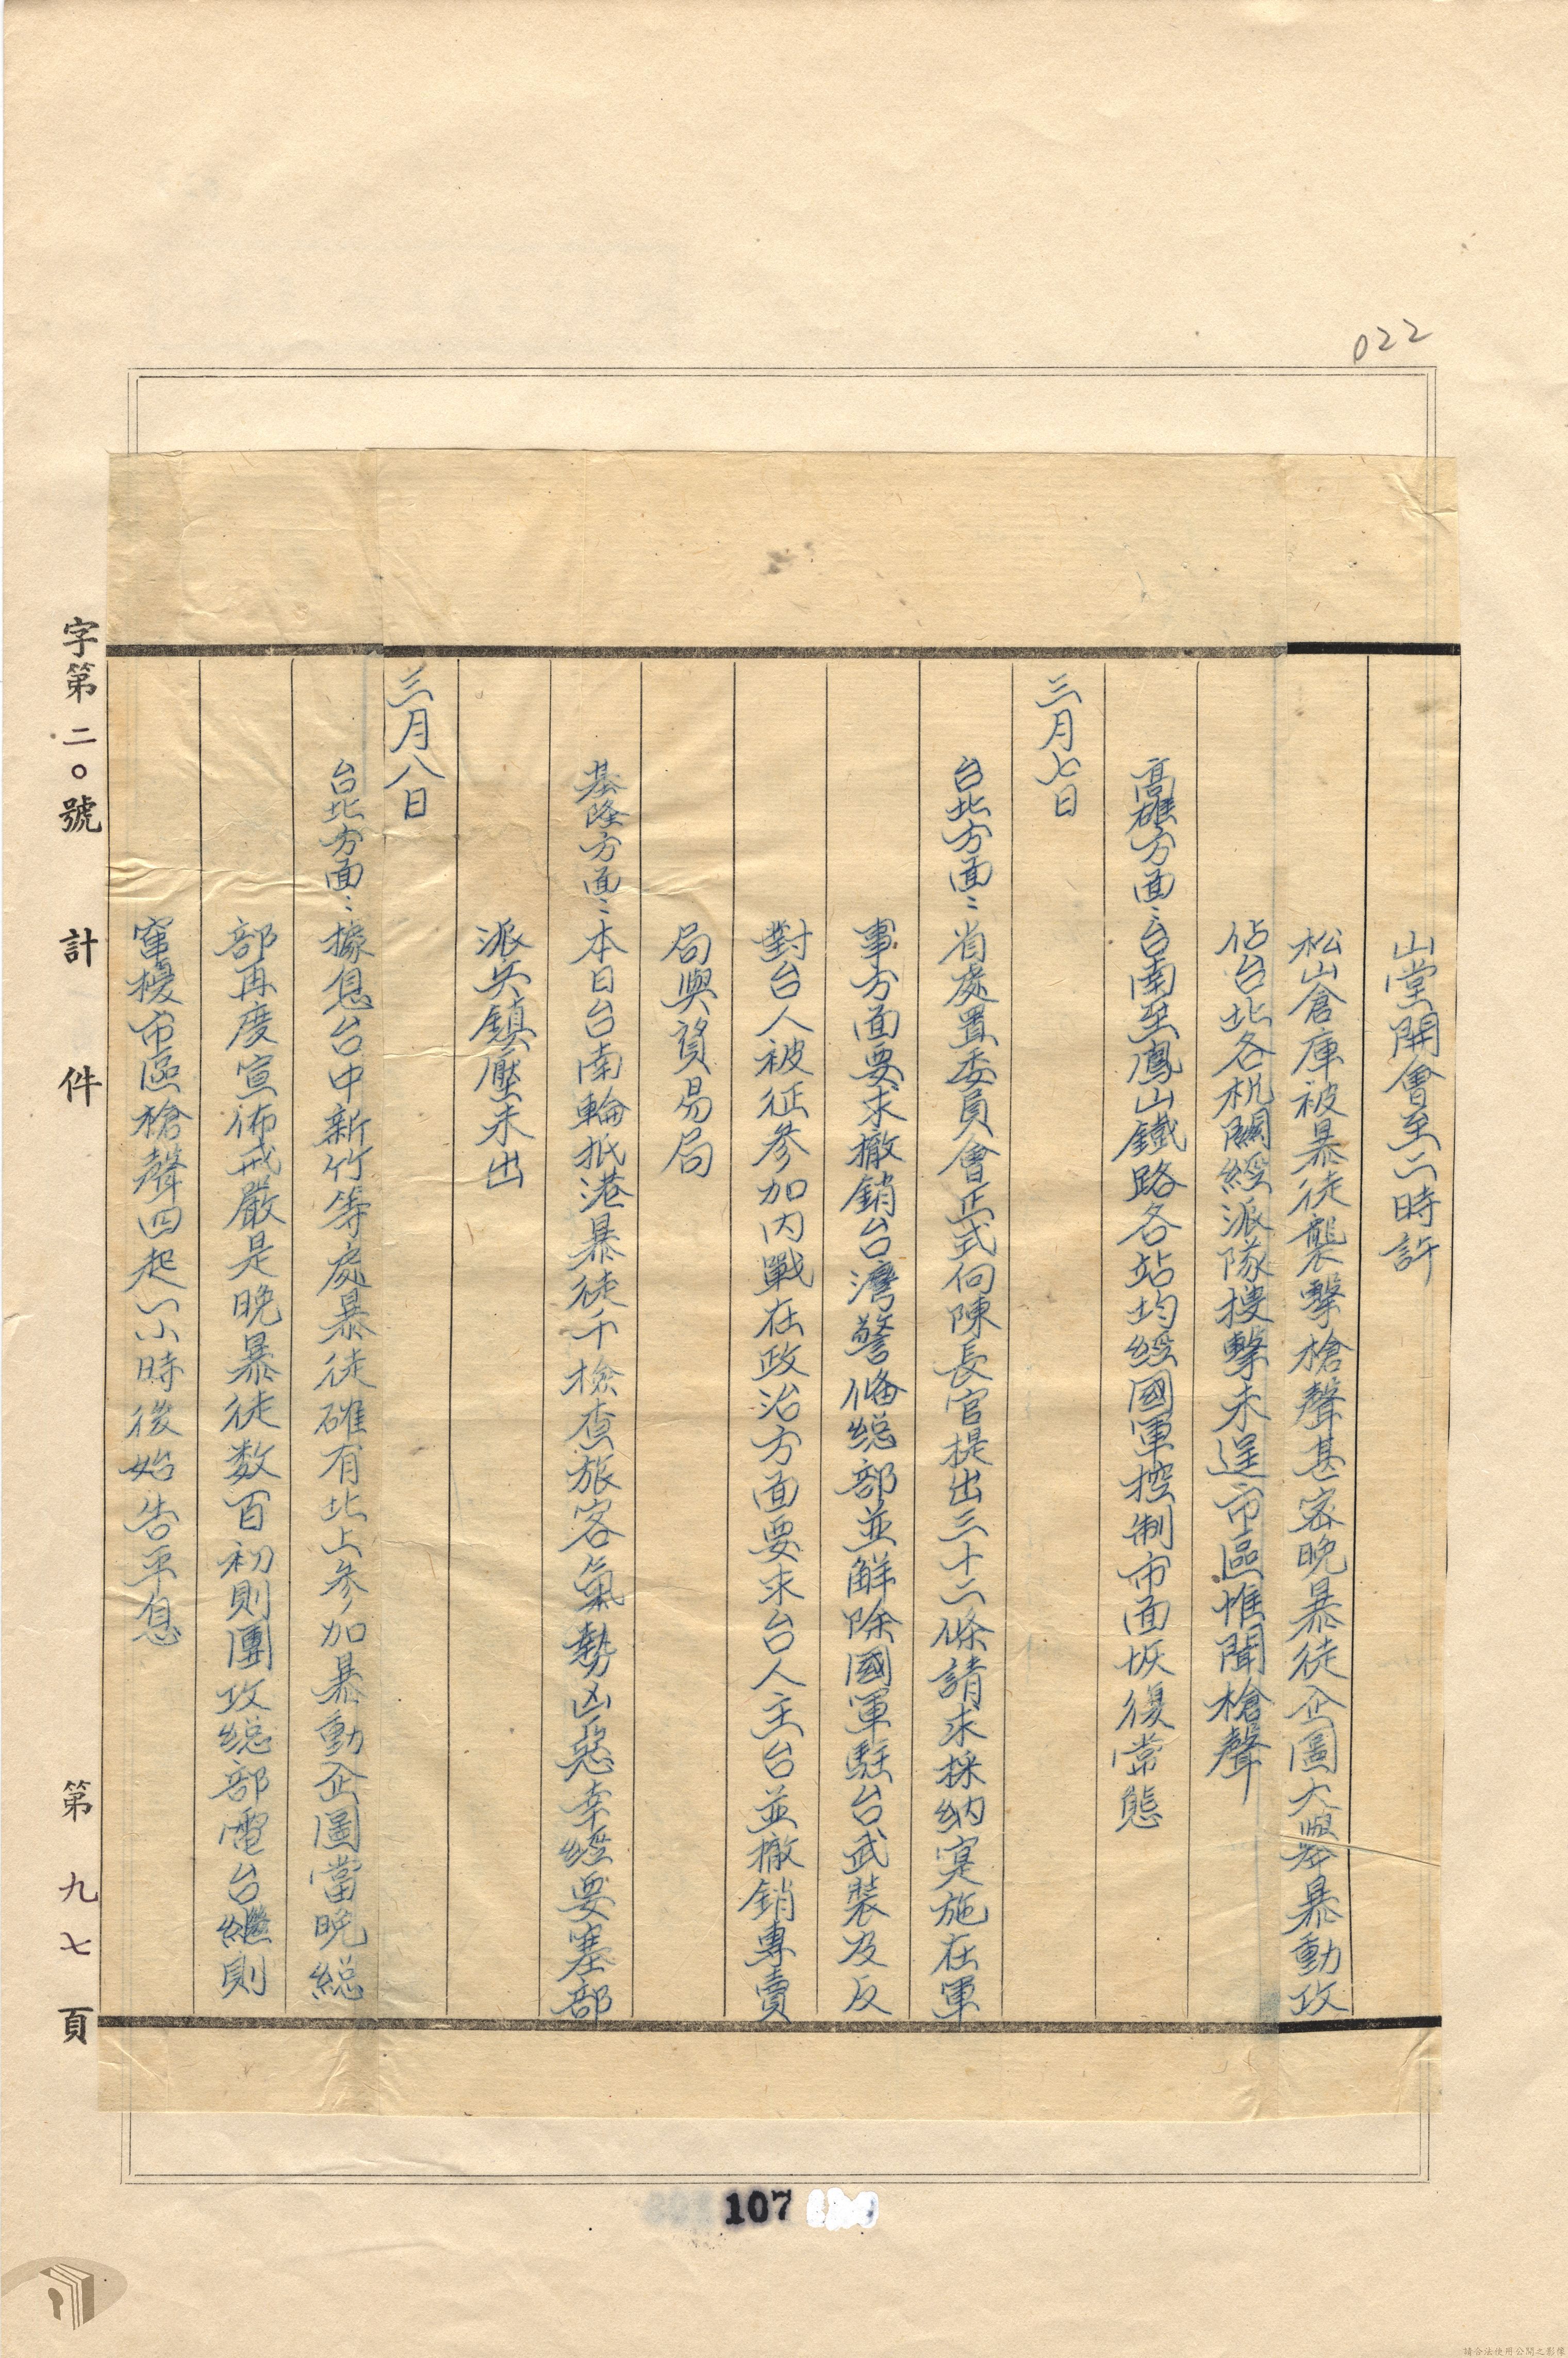 022
山堂開會至二時許
松山倉庫被暴徒襲擊槍聲甚密晚暴徒企圖大舉暴動攻
佔台北各机關經派隊搜擊未逞市區惟聞槍聲
高雄方面：台南至鳳山鐵路各站均經國軍控制市面恢復常態
三月七日
台北方面：省處置委員會正式向陳長官提出三十二條請求採納寔施在軍
事方面要求撤銷台灣警俻総部並解除國軍駐台武裝及反
對台人被征參加內戰在政治方面要求台人主台並撤銷專賣
局與貿易局
基隆方面：本日台南輪抵港暴徒千檢查旅客氣勢凶惡幸經要塞部
派兵鎮壓未出
三月八日
台北方面：據息台中新竹等處暴徒確有北上參加暴動企圖當晚総
部再度宣佈戒嚴是晚暴徒数百初則圍攻総部電台繼則
竄擾市區槍聲四起小時後始告平息
字第二○號 計 件 第九七頁
107
請合法使用公開之影像